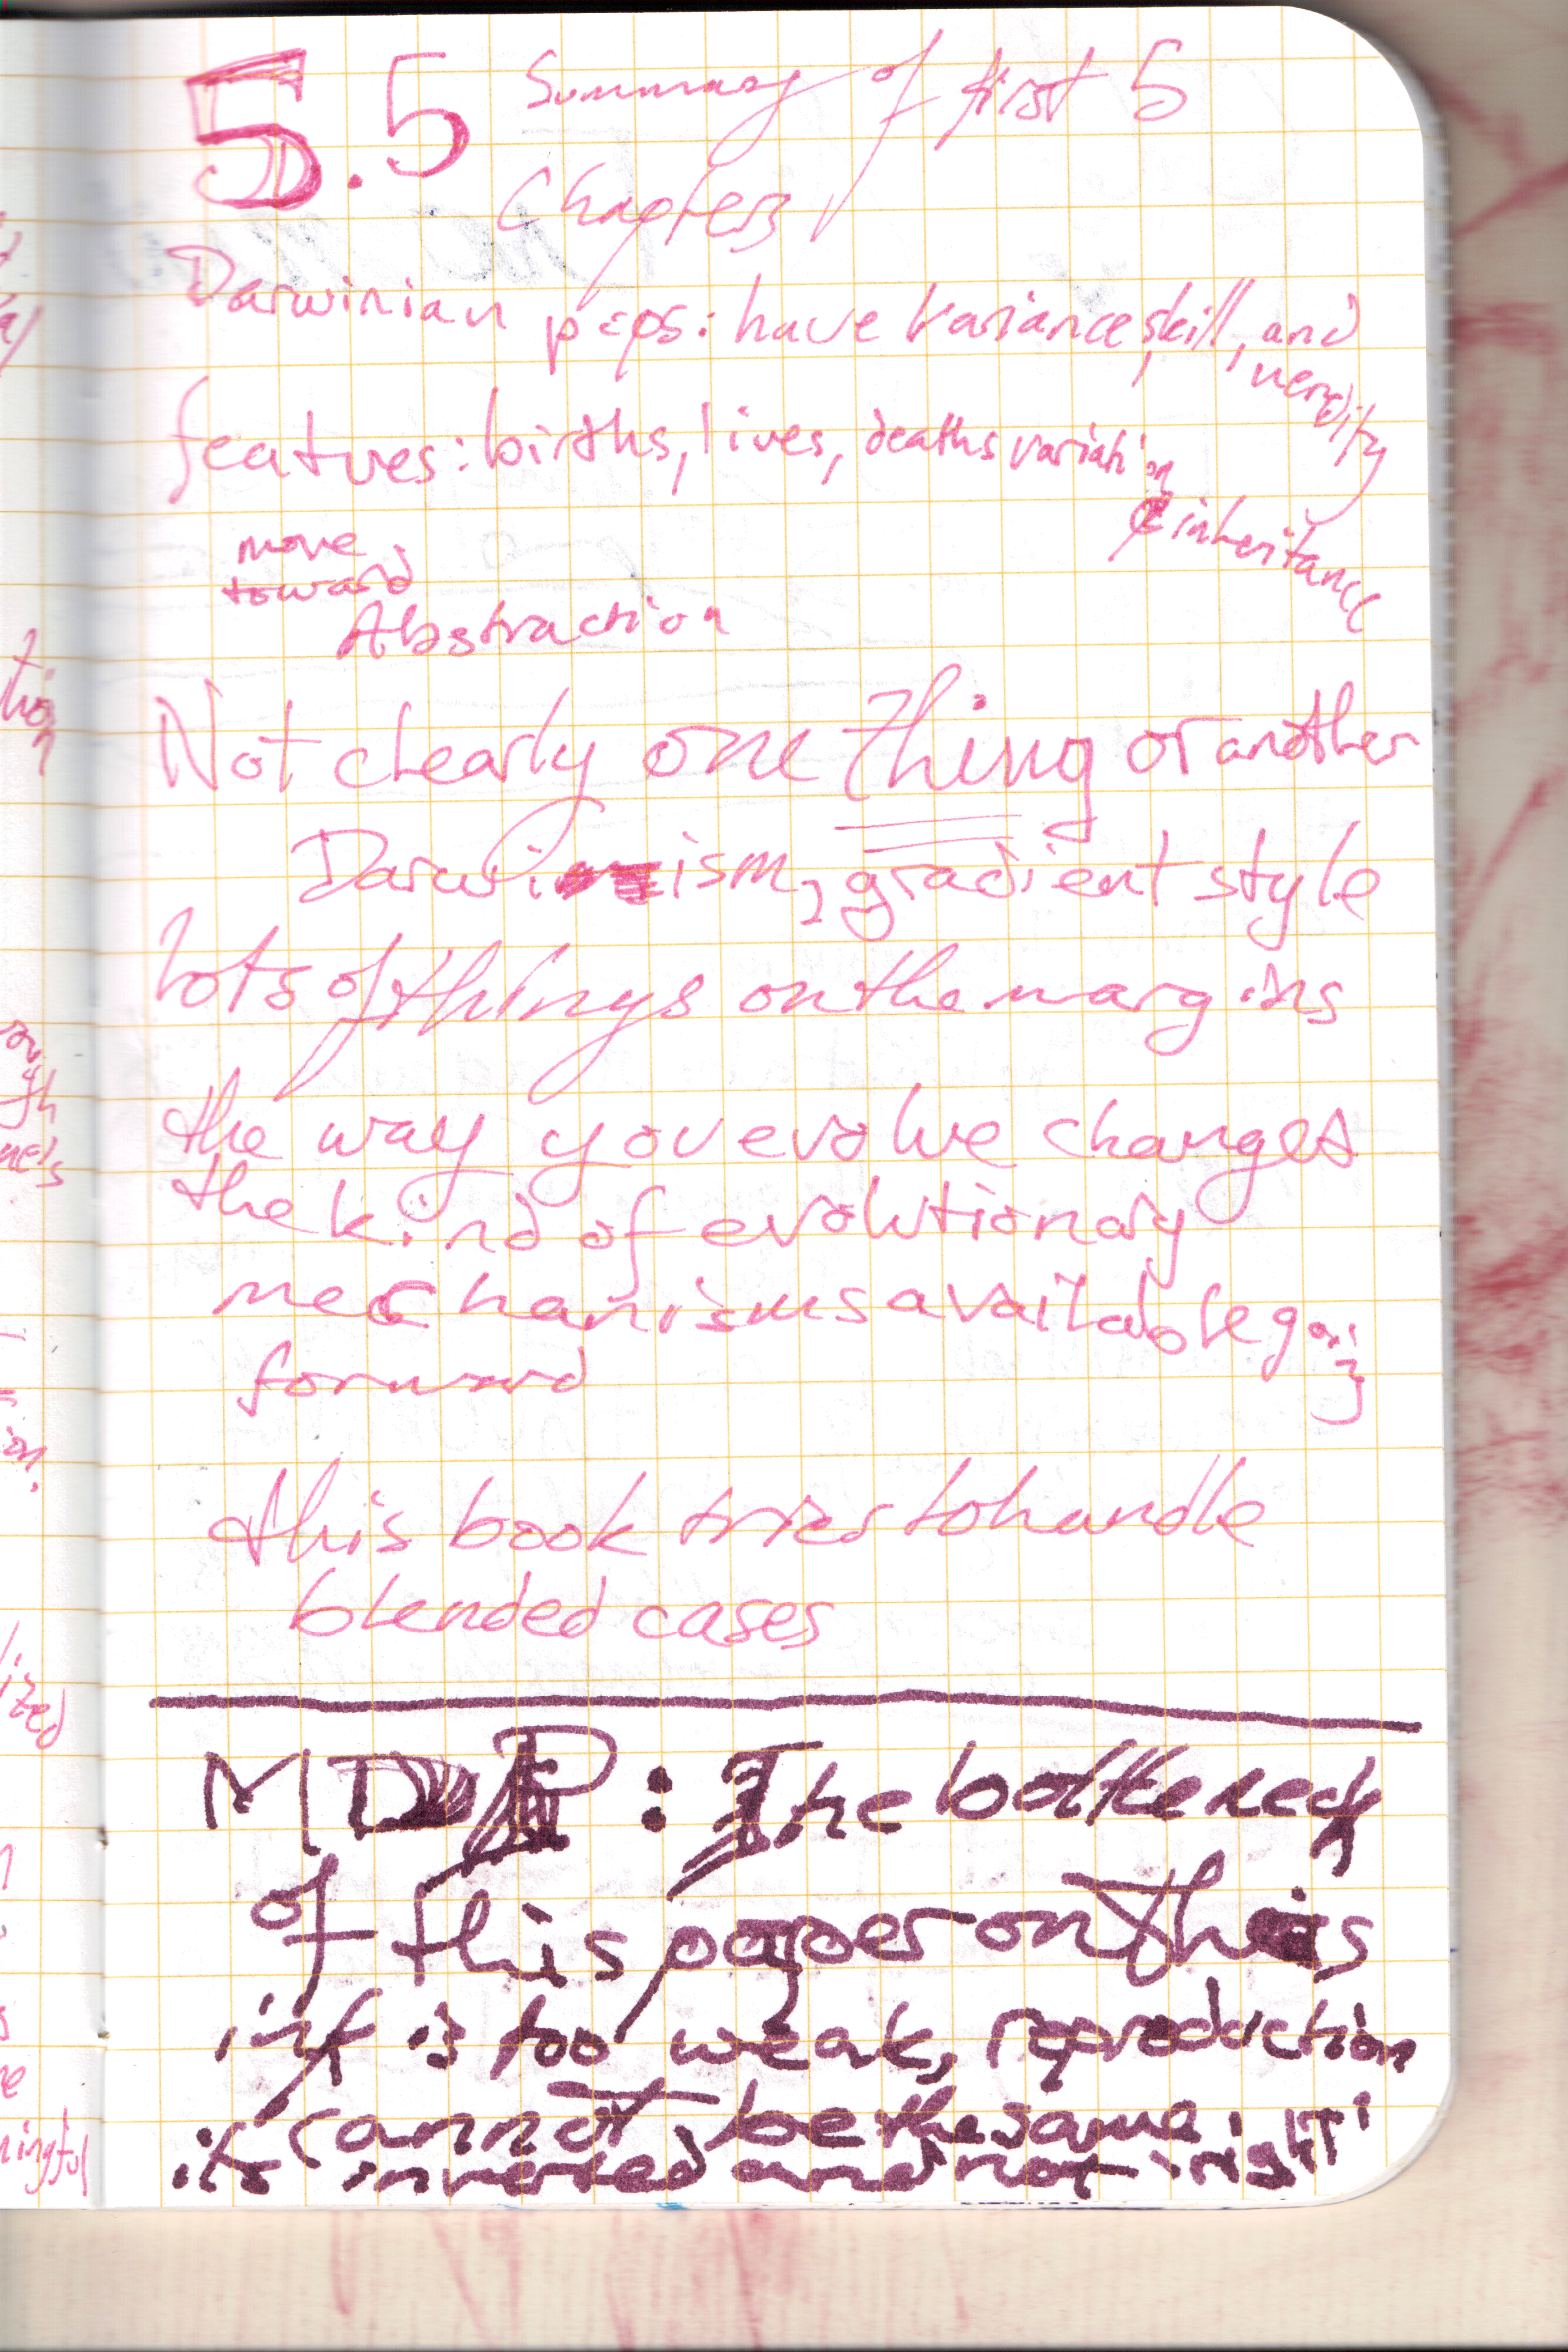 5.5 Summary of first 5
Chapters
Darwinian pops: have variance, skill, and
heredity
features: births, lives, deaths variation
& inheritance
move
toward
Abstraction
Not clearly one thing or another
Darwinism, gradient style
lots of things on the margins
the way you evolve changes
the kind of evolutionary
mechanisms available going
forward
this book tries to handle
blended cases
MDP: The bottleneck
of this paper on this
ink is too weak, reproduction
cannot be the same.
its inverted and not right
tion
ized
ningful